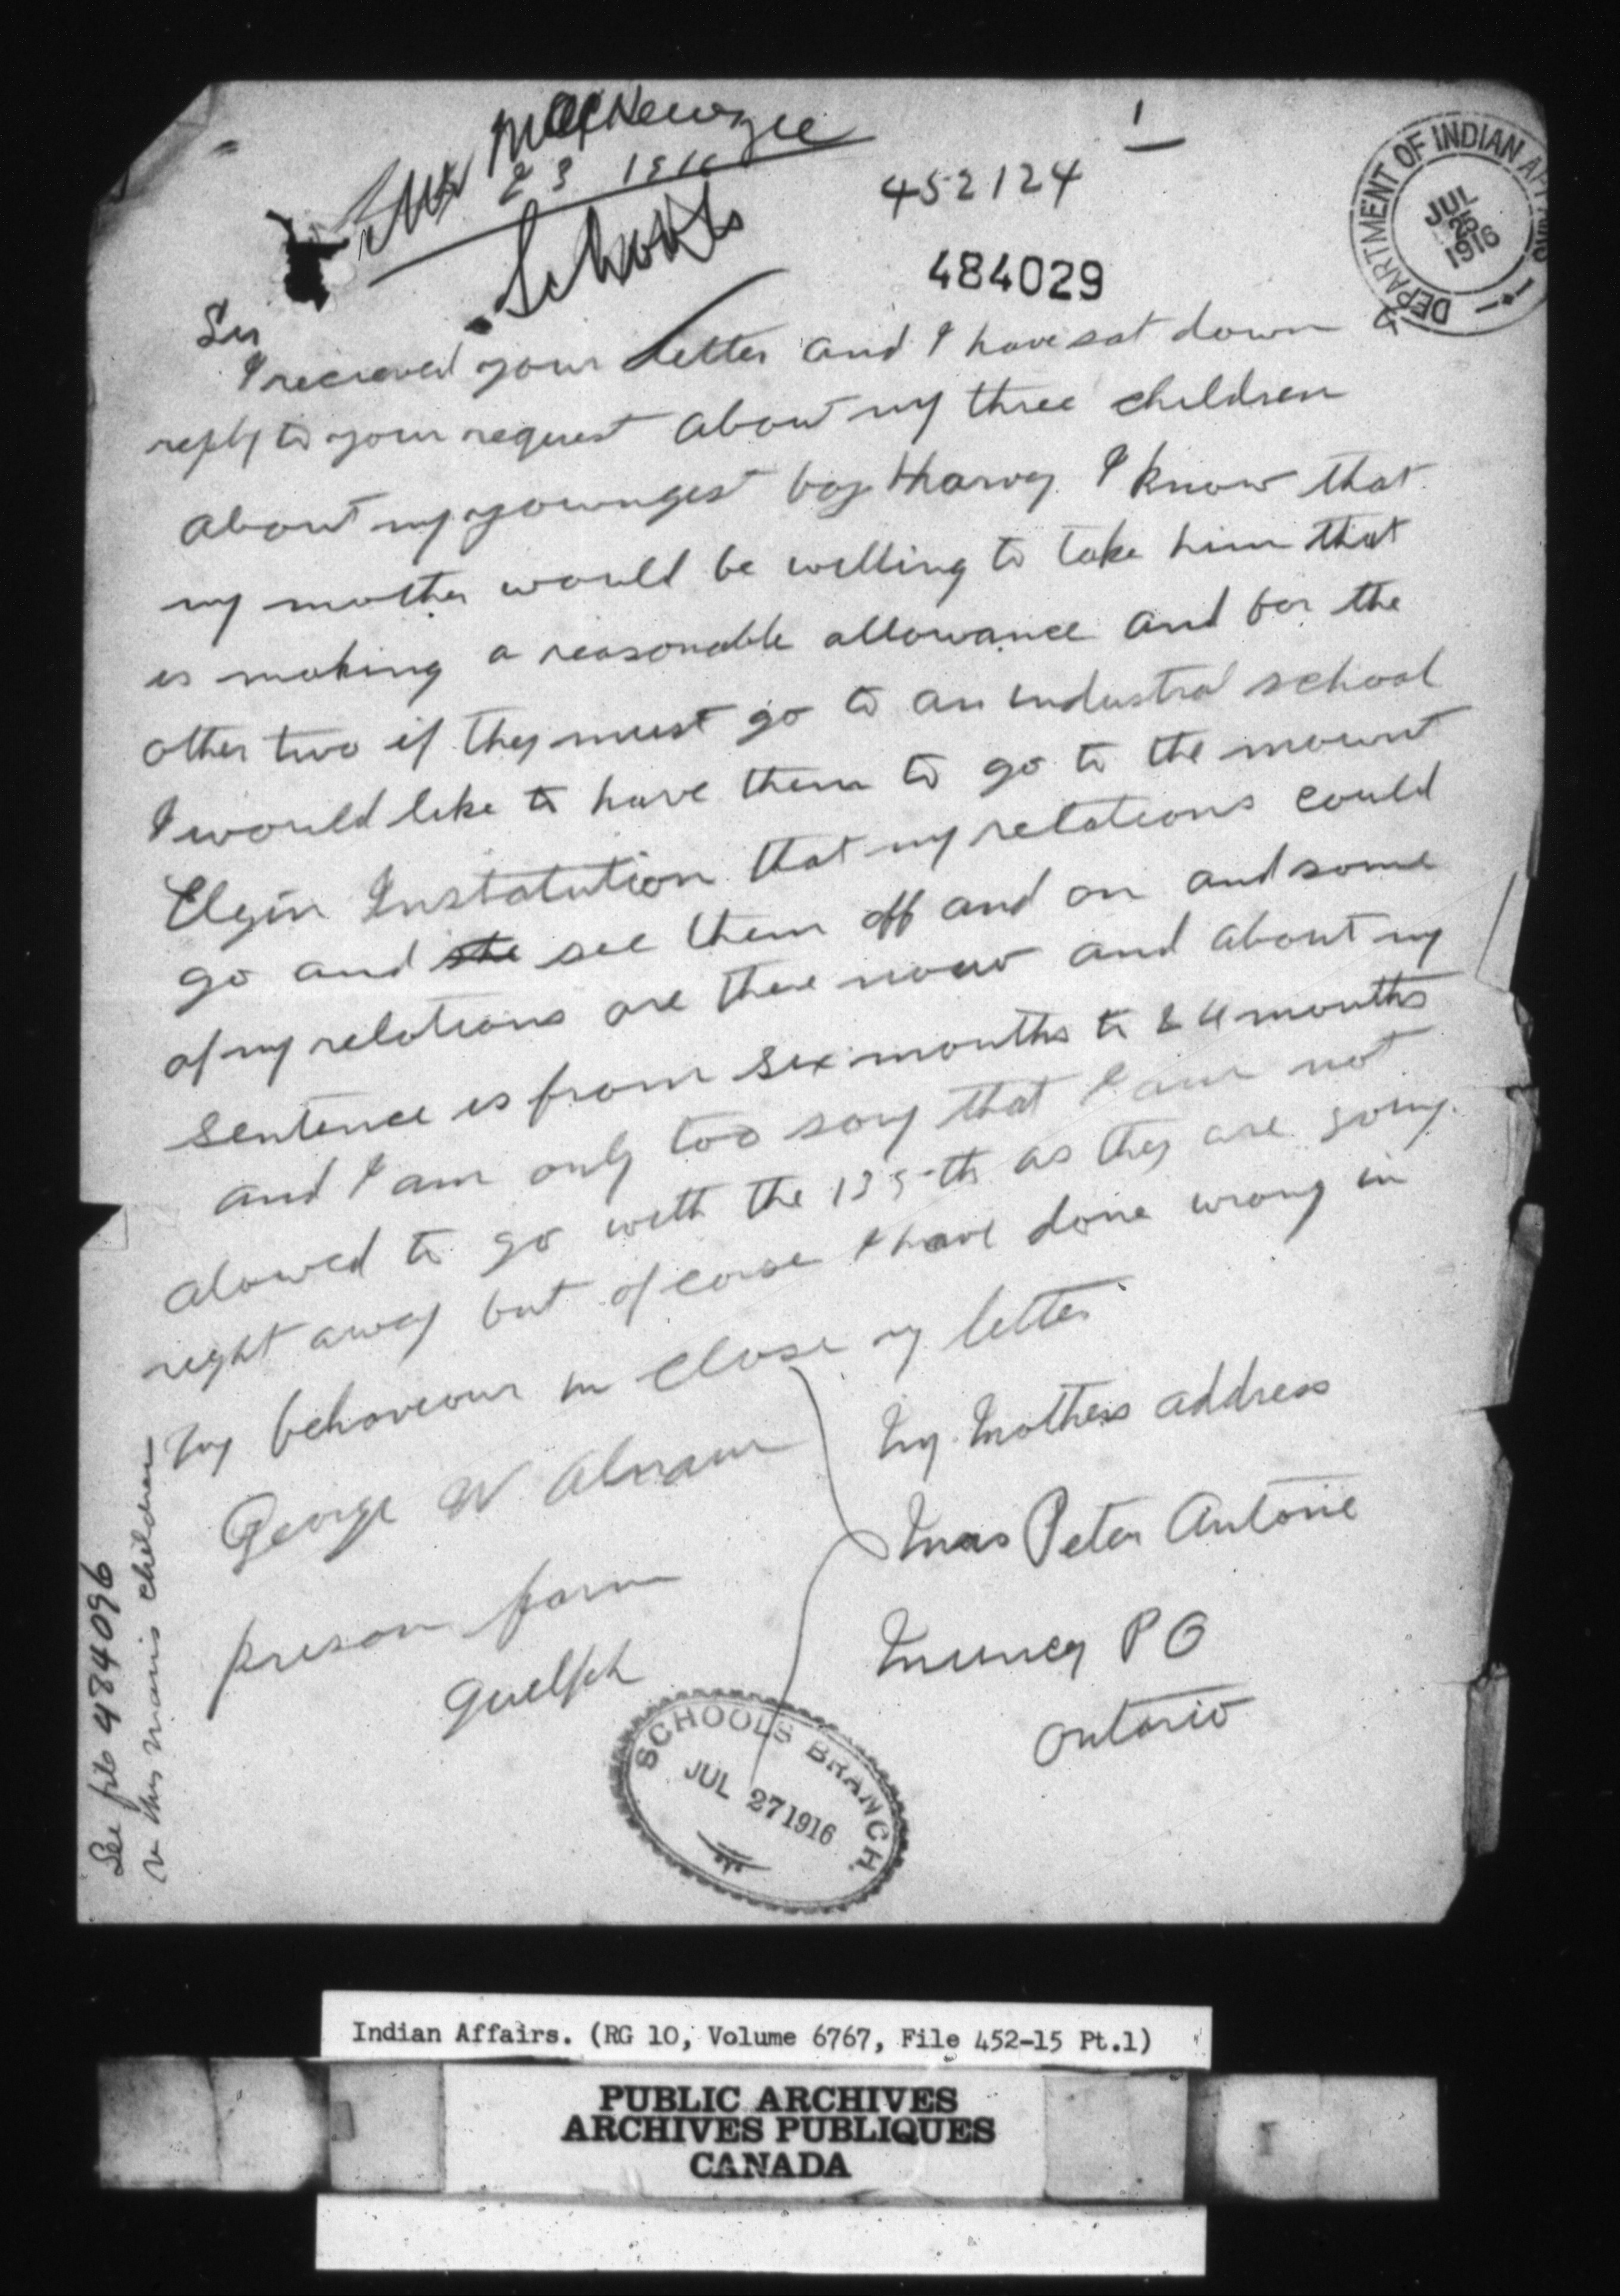 MacKenzie
23 1916
Schools
1
452124
484029
DEPARTMENT OF INDIAN AFFAIRS
JUL
25
1916
Sir
I recieved your letter and I have sat down to
reply to your request about my three children
about my youngest boy Harvey. I know that
my mother would be willing to take him that
is making a reasonable allowance and for the
other two if they must go to an industral school
I would like to have them to go to the mount
Elgin Instatution that my relations could
go and she see them off and on and some
of my relations are there now and about my
sentence is from six months to 24 months
and I am only too sory that I am not
alowed to go with the 135th as they are going
right away but of corse I have done wrong in
my behaveour in close my letter
George W
prison farm
Guelph
My Mothers address
Mrs Peter Antone
Muncey P O
Ontario
See file 484096
re this man's children
SCHOOLS BRANCH.
JUL 27 1916
Indian Affairs. (RG 10, Volume 6767, File 452-15 Pt.1)
PUBLIC ARCHIVES
ARCHIVES PUBLIQUES
CANADA